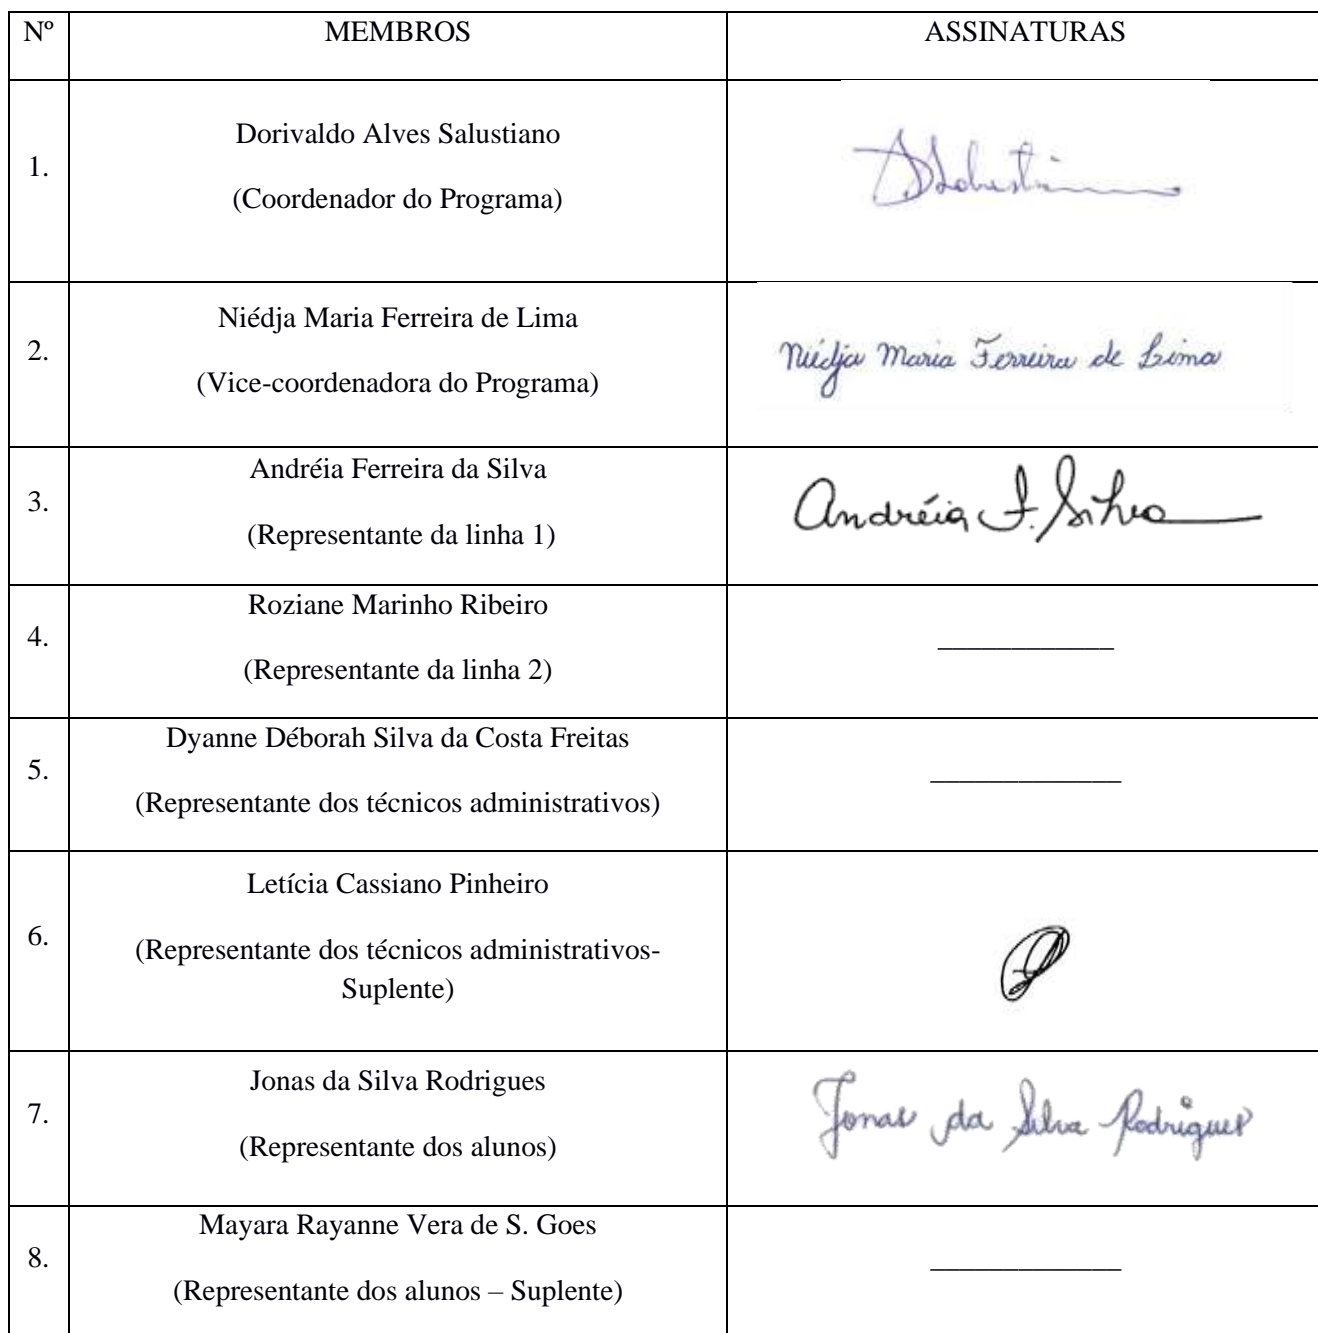 Nº MEMBROS ASSINATURAS
1.
Dorivaldo Alves Salustiano
(Coordenador do Programa)
2.
Niédja Maria Ferreira de Lima
(Vice-coordenadora do Programa)
Niédja Maria Ferreira de Lima
3.
Andréia Ferreira da Silva
(Representante da linha 1)
Andréia F. Silva
4.
Roziane Marinho Ribeiro
(Representante da linha 2)
5.
Dyanne Déborah Silva da Costa Freitas
(Representante dos técnicos administrativos)
6.
Letícia Cassiano Pinheiro
(Representante dos técnicos administrativos-
Suplente)
7.
Jonas da Silva Rodrigues
(Representante dos alunos)
Jonas da Silva Rodrigues
8.
Mayara Rayanne Vera de S. Goes
(Representante dos alunos – Suplente)